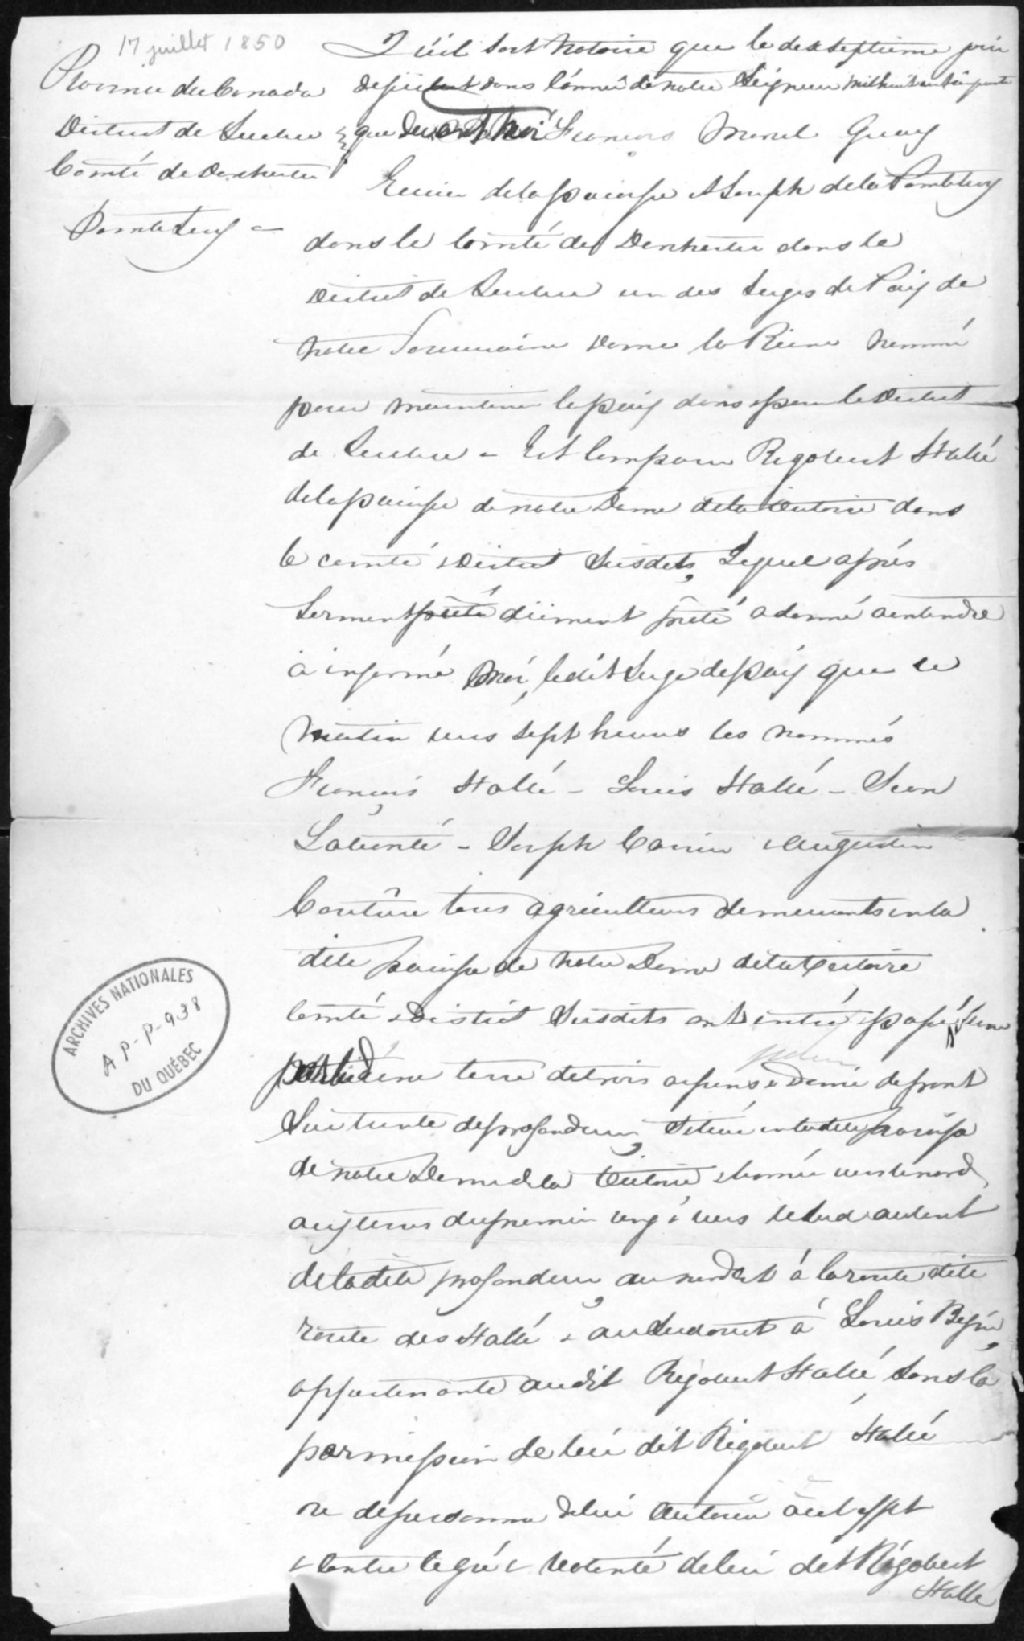 17 juillet 1850
Province du Canada
District de Quebec
Comté de Dorchester
Pointe Levy -
Qu'il soit Notoire que le dixseptieme jour
de juillet dans l'année de notre Seigneur mil huit cent cinquante
que devant Moi François Morel Guay
Ecuier de la paroisse St Joseph de la Pointe Levy
dans le Comté de Dorchester dans le
District de Quebec un des Juges de Paix de
Notre Souveraine Dame la Reine Nommé
pour maintenir la paix dans & pour le District
de Quebec - Est Comparu Rigobert Hallé
de la paroisse de notre Dame de la Victoire dans
le comté & District Susdits, Lequel après
Serment prêté dûement prêté a donné a entendre
& informé Moi, ledit Juge de paix que ce
Matin vers Sept heures les nommés
François Hallé - Louis Hallé - Jean
- Joseph Carrier & Augustin
Couture tous agriculteurs demeurants en la
dite paroisse de Notre Dame de la Victoire
Comté & District Susdits ont entré & passé Sur
une terre de trois arpens & Demie de front
Sur trente de profondeur, Située en la dite paroisse
de Notre Dame de la Victoire & bornée vers le nord
aux terres du premier rang & vers le Sud au bout
de la dite profondeur, au nordest à la route dite
route des Hallé & au Sudouest à Louis Begin,
appartenante audit Rigobert Hallé Sans la
permission de lui dit Rigobert Hallé
ou de personne de lui Autorisé à cet effet
& Contre le gré & Volonté de lui dit Rigobert
Hallé
ARCHIVES NATIONALES
AP-P-938
DU QUÉBEC